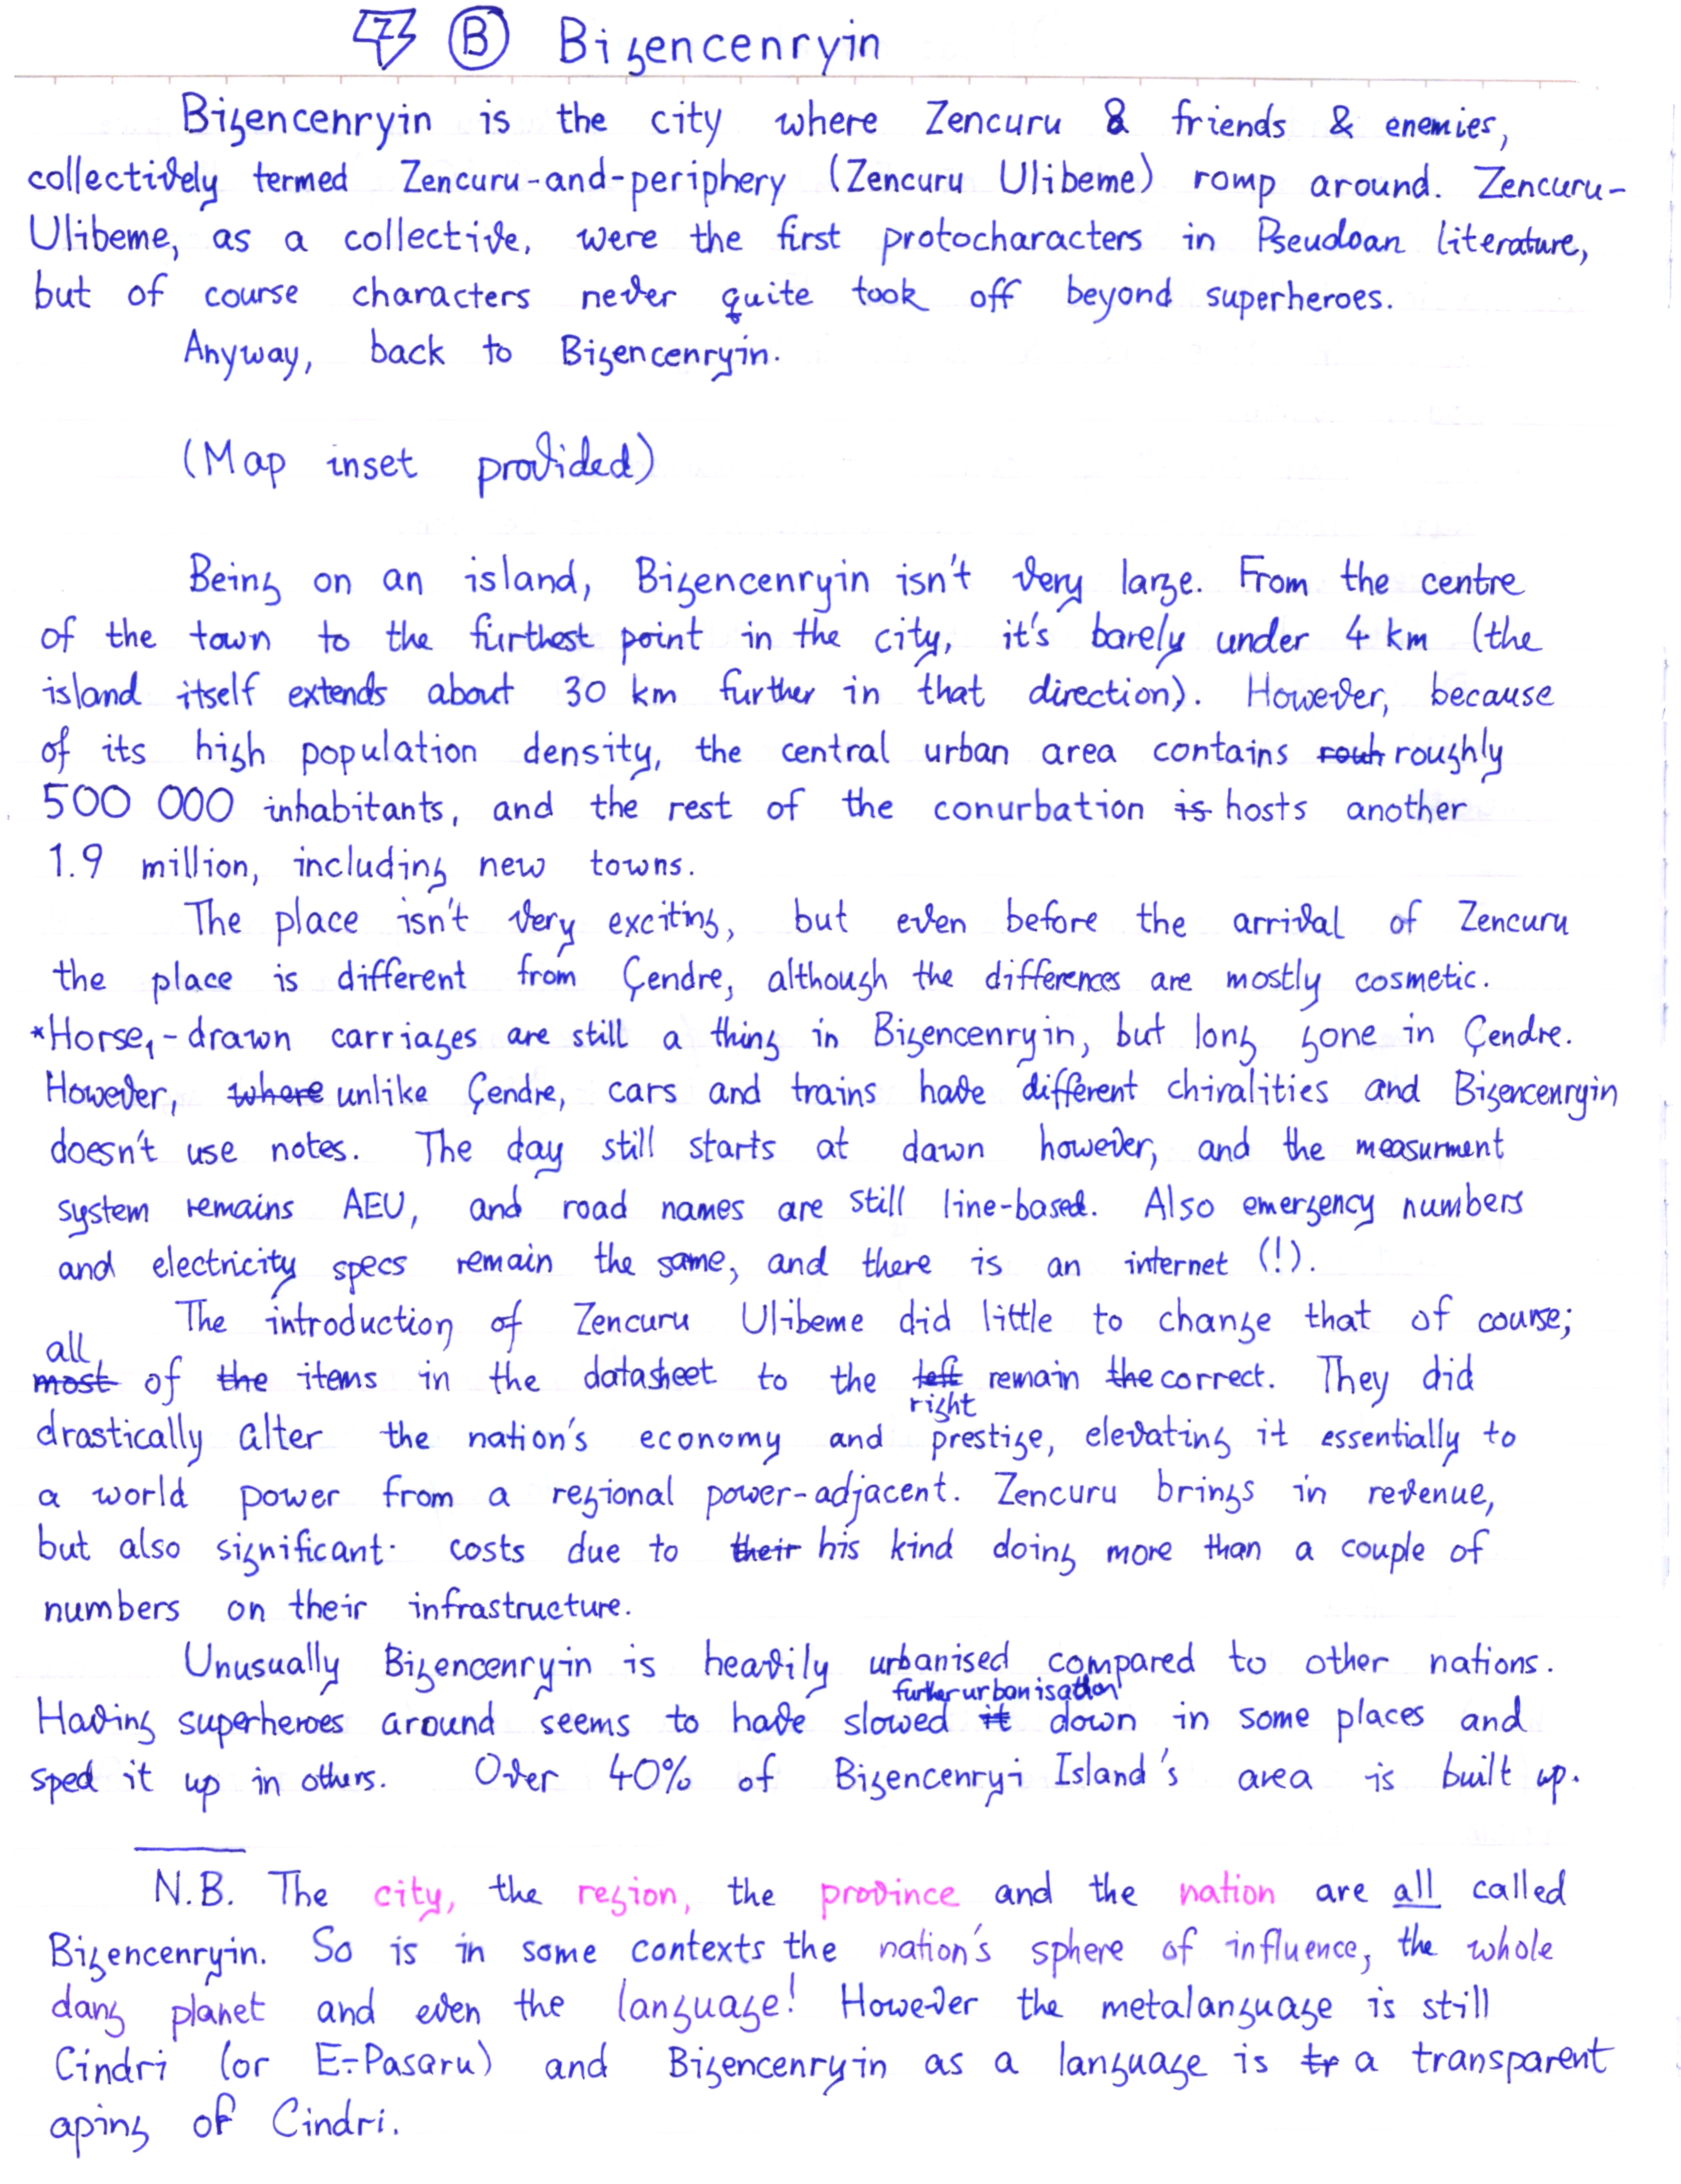 Z B Bigencenryin
Bigencenryin is the city where Zencuru & friends & enemies,
collectively termed Zencuru-and-periphery (Zencuru Ulibeme) romp around. Zencuru-
Ulibeme, as a collective, were the first protocharacters in Pseudoan literature,
but of course characters never quite took off beyond superheroes.
Anyway, back to Bigencenryin.
(Map inset provided)
Being on an island, Bigencenryin isn't very large. From the centre
of the town to the furthest point in the city, it's barely under 4 km (the
island itself extends about 30 km further in that direction). However, because
of its high population density, the central urban area contains rouh roughly
500 000 inhabitants, and the rest of the conurbation is hosts another
1.9 million, including new towns.
The place isn't very exciting, but even before the arrival of Zencuru
the place is different from Çendre, although the differences are mostly cosmetic.
*Horse,-drawn carriages are still a thing in Bigencenryin, but long gone in Çendre.
However, where unlike Çendre, cars and trains have different chiralities and Bigencenryin
doesn't use notes. The day still starts at dawn however, and the measurment
system remains AEU, and road names are still line-based. Also emergency numbers
and electricity specs remain the same, and there is an internet (!).
The introduction of Zencuru Ulibeme did little to change that of course;
all
most of the items in the datasheet to the left remain the correct. They did
right
drastically alter the nation's economy and prestige, elevating it essentially to
a world power from a regional power-adjacent. Zencuru brings in revenue,
but also significant costs due to their his kind doing more than a couple of
numbers on their infrastructure.
Unusually Bigencenryin is heavily urbanised compared to other nations.
further urbanisation
Having superheroes around seems to have slowed it down in some places and
sped it up in others. Over 40% of Bigencenryi Island's area is built up.
N.B. The city, the region, the province and the nation are all called
Bigencenryin. So is in some contexts the nation's sphere of influence, the whole
dang planet and even the language! However the metalanguage is still
Cindri (or E-Pasaru) and Bigencenryin as a language is tr a transparent
aping of Cindri.